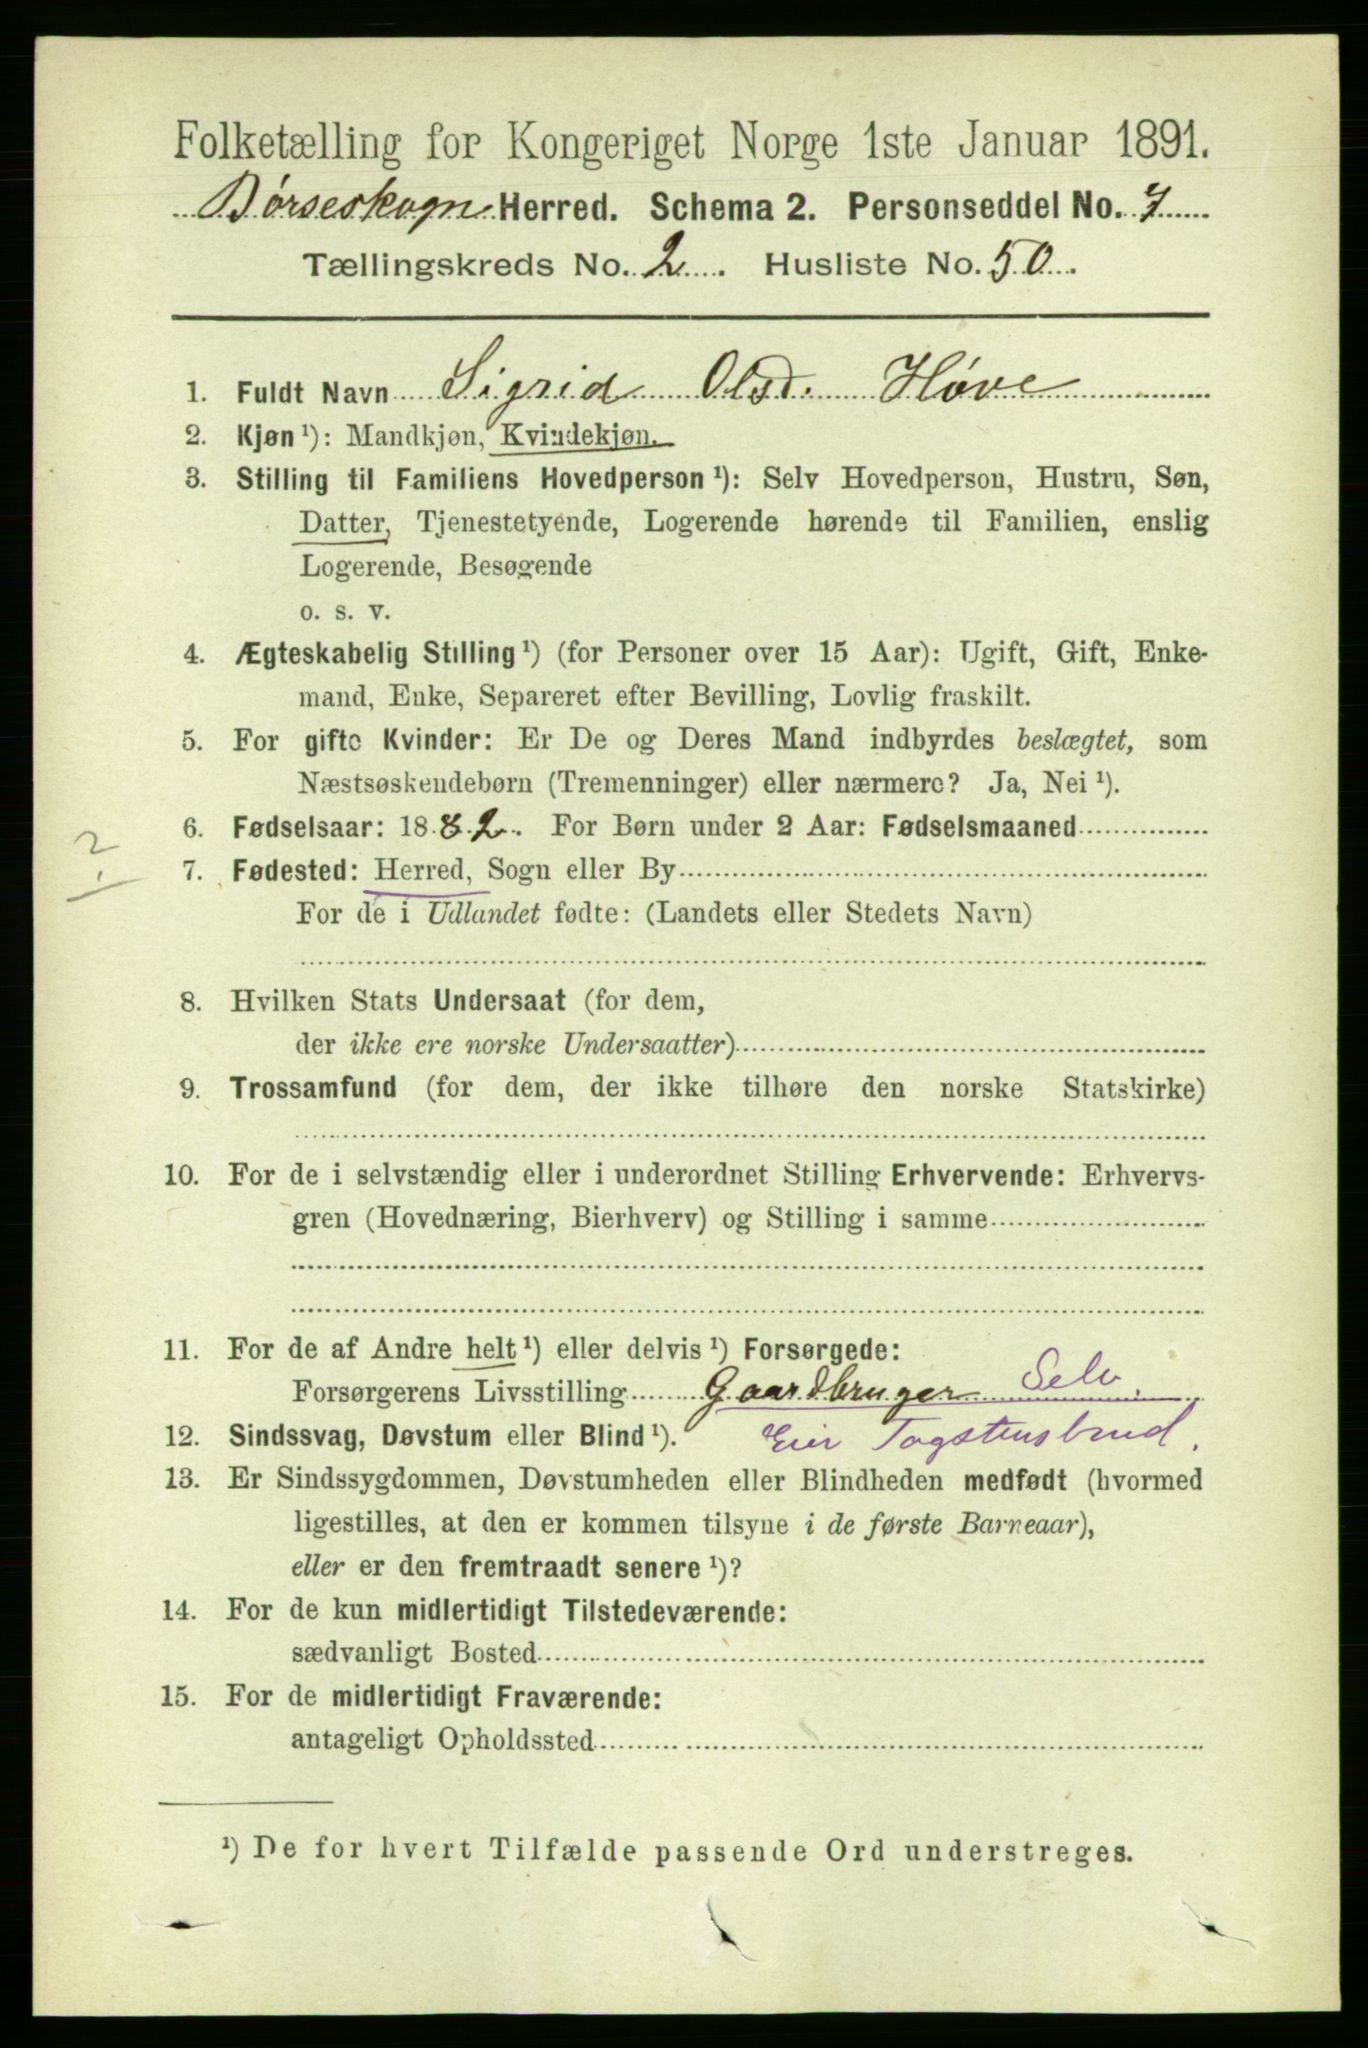 Folketælling for Kongeriget Norge 1ste Januar 1891.
Børseskogn Herred. Schema 2. Personseddel No. 7
Tællingskreds No. 2. Husliste No. 50.
1. Fuldt Navn Sigrid Olsd. Høve
2. Kjøn ¹): Mandkjøn, Kvindekjøn.
3. Stilling til Familiens Hovedperson ¹): Selv Hovedperson, Hustru, Søn,
Datter, Tjenestetyende, Logerende hørende til Familien, enslig
Logerende, Besøgende
o. s. v.
4. Ægteskabelig Stilling ¹) (for Personer over 15 Aar): Ugift, Gift, Enke-
mand, Enke, Separeret efter Bevilling, Lovlig fraskilt.
5. For gifte Kvinder: Er De og Deres Mand indbyrdes beslægtet, som
Næstsøskendebørn (Tremenninger) eller nærmere? Ja, Nei ¹).
6. Fødselsaar: 1882. For Børn under 2 Aar: Fødselsmaaned
?
7. Fødested: Herred, Sogn eller By
For de i Udlandet fødte: (Landets eller Stedets Navn)
8. Hvilken Stats Undersaat (for dem,
der ikke ere norske Undersaatter)
9. Trossamfund (for dem, der ikke tilhøre den norske Statskirke)
10. For de i selvstændig eller i underordnet Stilling Erhvervende: Erhvervs-
gren (Hovednæring, Bierhverv) og Stilling i samme
11. For de af Andre helt ¹) eller delvis ¹) Forsørgede:
Forsørgerens Livsstilling Gaardbruger Selv.
12. Sindssvag, Døvstum eller Blind ¹). Eier Tagstensbrud.
13. Er Sindssygdommen, Døvstumheden eller Blindheden medfødt (hvormed
ligestilles, at den er kommen tilsyne i de første Barneaar),
eller er den fremtraadt senere ¹)?
14. For de kun midlertidigt Tilstedeværende:
sædvanligt Bosted
15. For de midlertidigt Fraværende:
antageligt Opholdssted
¹) De for hvert Tilfælde passende Ord understreges.